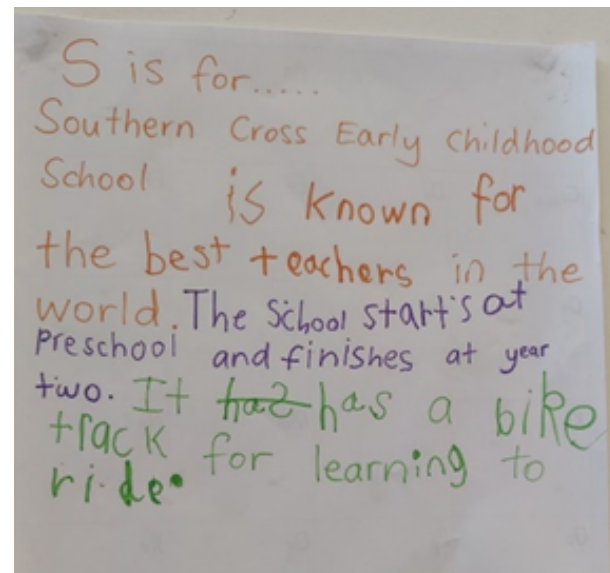 S is for.....
Southern Cross Early Childhood
School is known for
the best teachers in the
world. The School start's at
Preschool and finishes at year
two. It has a bike
track for learning to
ride.